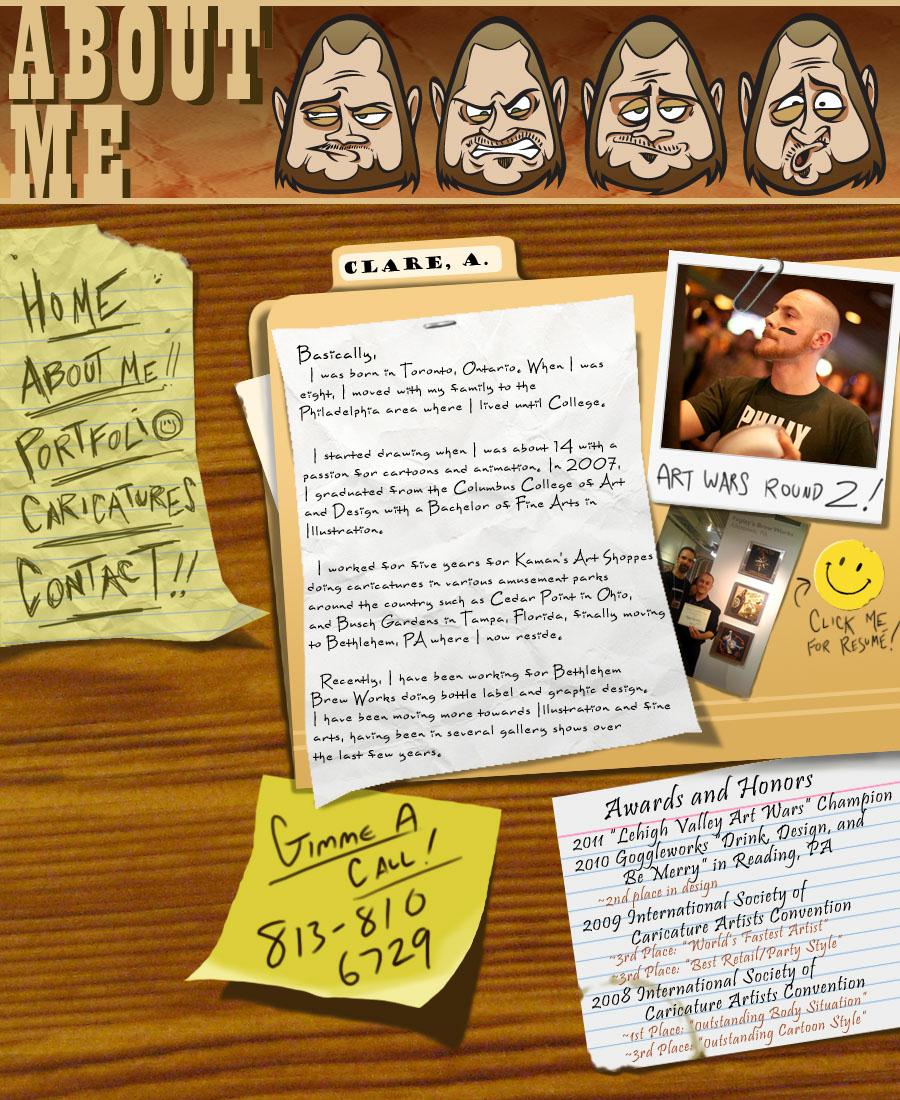 ABOUT
ME
HOME
ABOUT ME!!
PORTFOLIO
CARICATURES
CONTACT!!
CLARE, A.
Basically,
I was born in Toronto, Ontario. When I was
eight, I moved with my family to the
Philadelphia area where I lived until College.
I started drawing when I was about 14 with a
passion for cartoons and animation. In 2007,
I graduated from the Columbus College of Art
and Design with a Bachelor of Fine Arts in
Illustration.
I worked for five years for Kaman's Art Shoppes
doing caricatures in various amusement parks
around the country such as Cedar Point in Ohio,
and Busch Gardens in Tampa, Florida, finally moving
to Bethlehem, PA where I now reside.
Recently, I have been working for Bethlehem
Brew Works doing bottle label and graphic design.
I have been moving more towards Illustration and fine
arts, having been in several gallery shows over
the last few years.
PHILLY
ART WARS ROUND 2!
Brew Works
CLICK ME
FOR RESUME!
GIMME A
CALL!
813-810
6729
Awards and Honors
2011 "Lehigh Valley Art Wars" Champion
2010 Goggleworks "Drink, Design, and
Be Merry" in Reading, PA
~2nd place in design
2009 International Society of
Caricature Artists Convention
~3rd Place: "World's Fastest Artist"
~3rd Place: "Best Retail/Party Style"
2008 International Society of
Caricature Artists Convention
~1st Place: "Outstanding Body Situation"
~3rd Place: "Outstanding Cartoon Style"